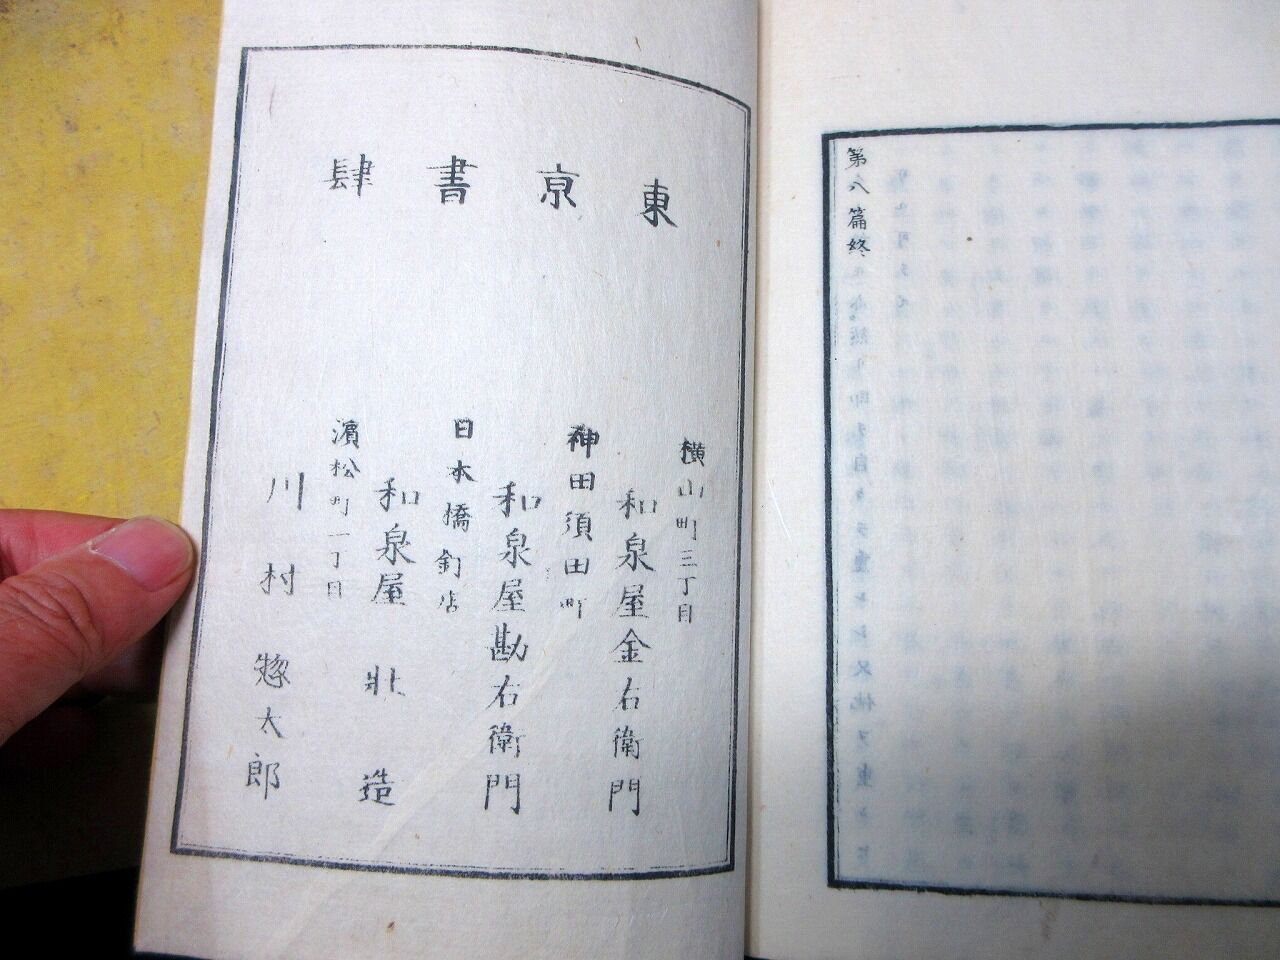 第八篇終
東京書肆
横山町三丁目
和泉屋金右衛門
神田須田町
和泉屋勘右衛門
日本橋釘店
和泉屋壯造
濱松町一丁目
川村惣太郎